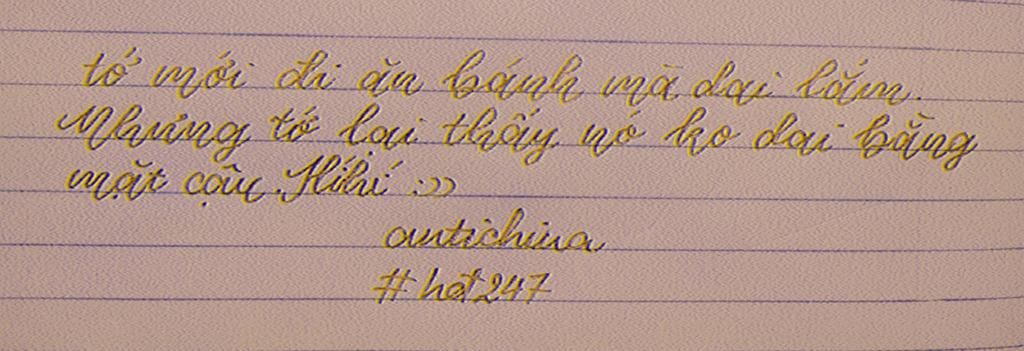 tớ mới đi ăn bánh mà dai lắm.
Nhưng tớ lại thấy nó ko dai bằng
mặt cậu. Hihí :))
antichina
#hot247